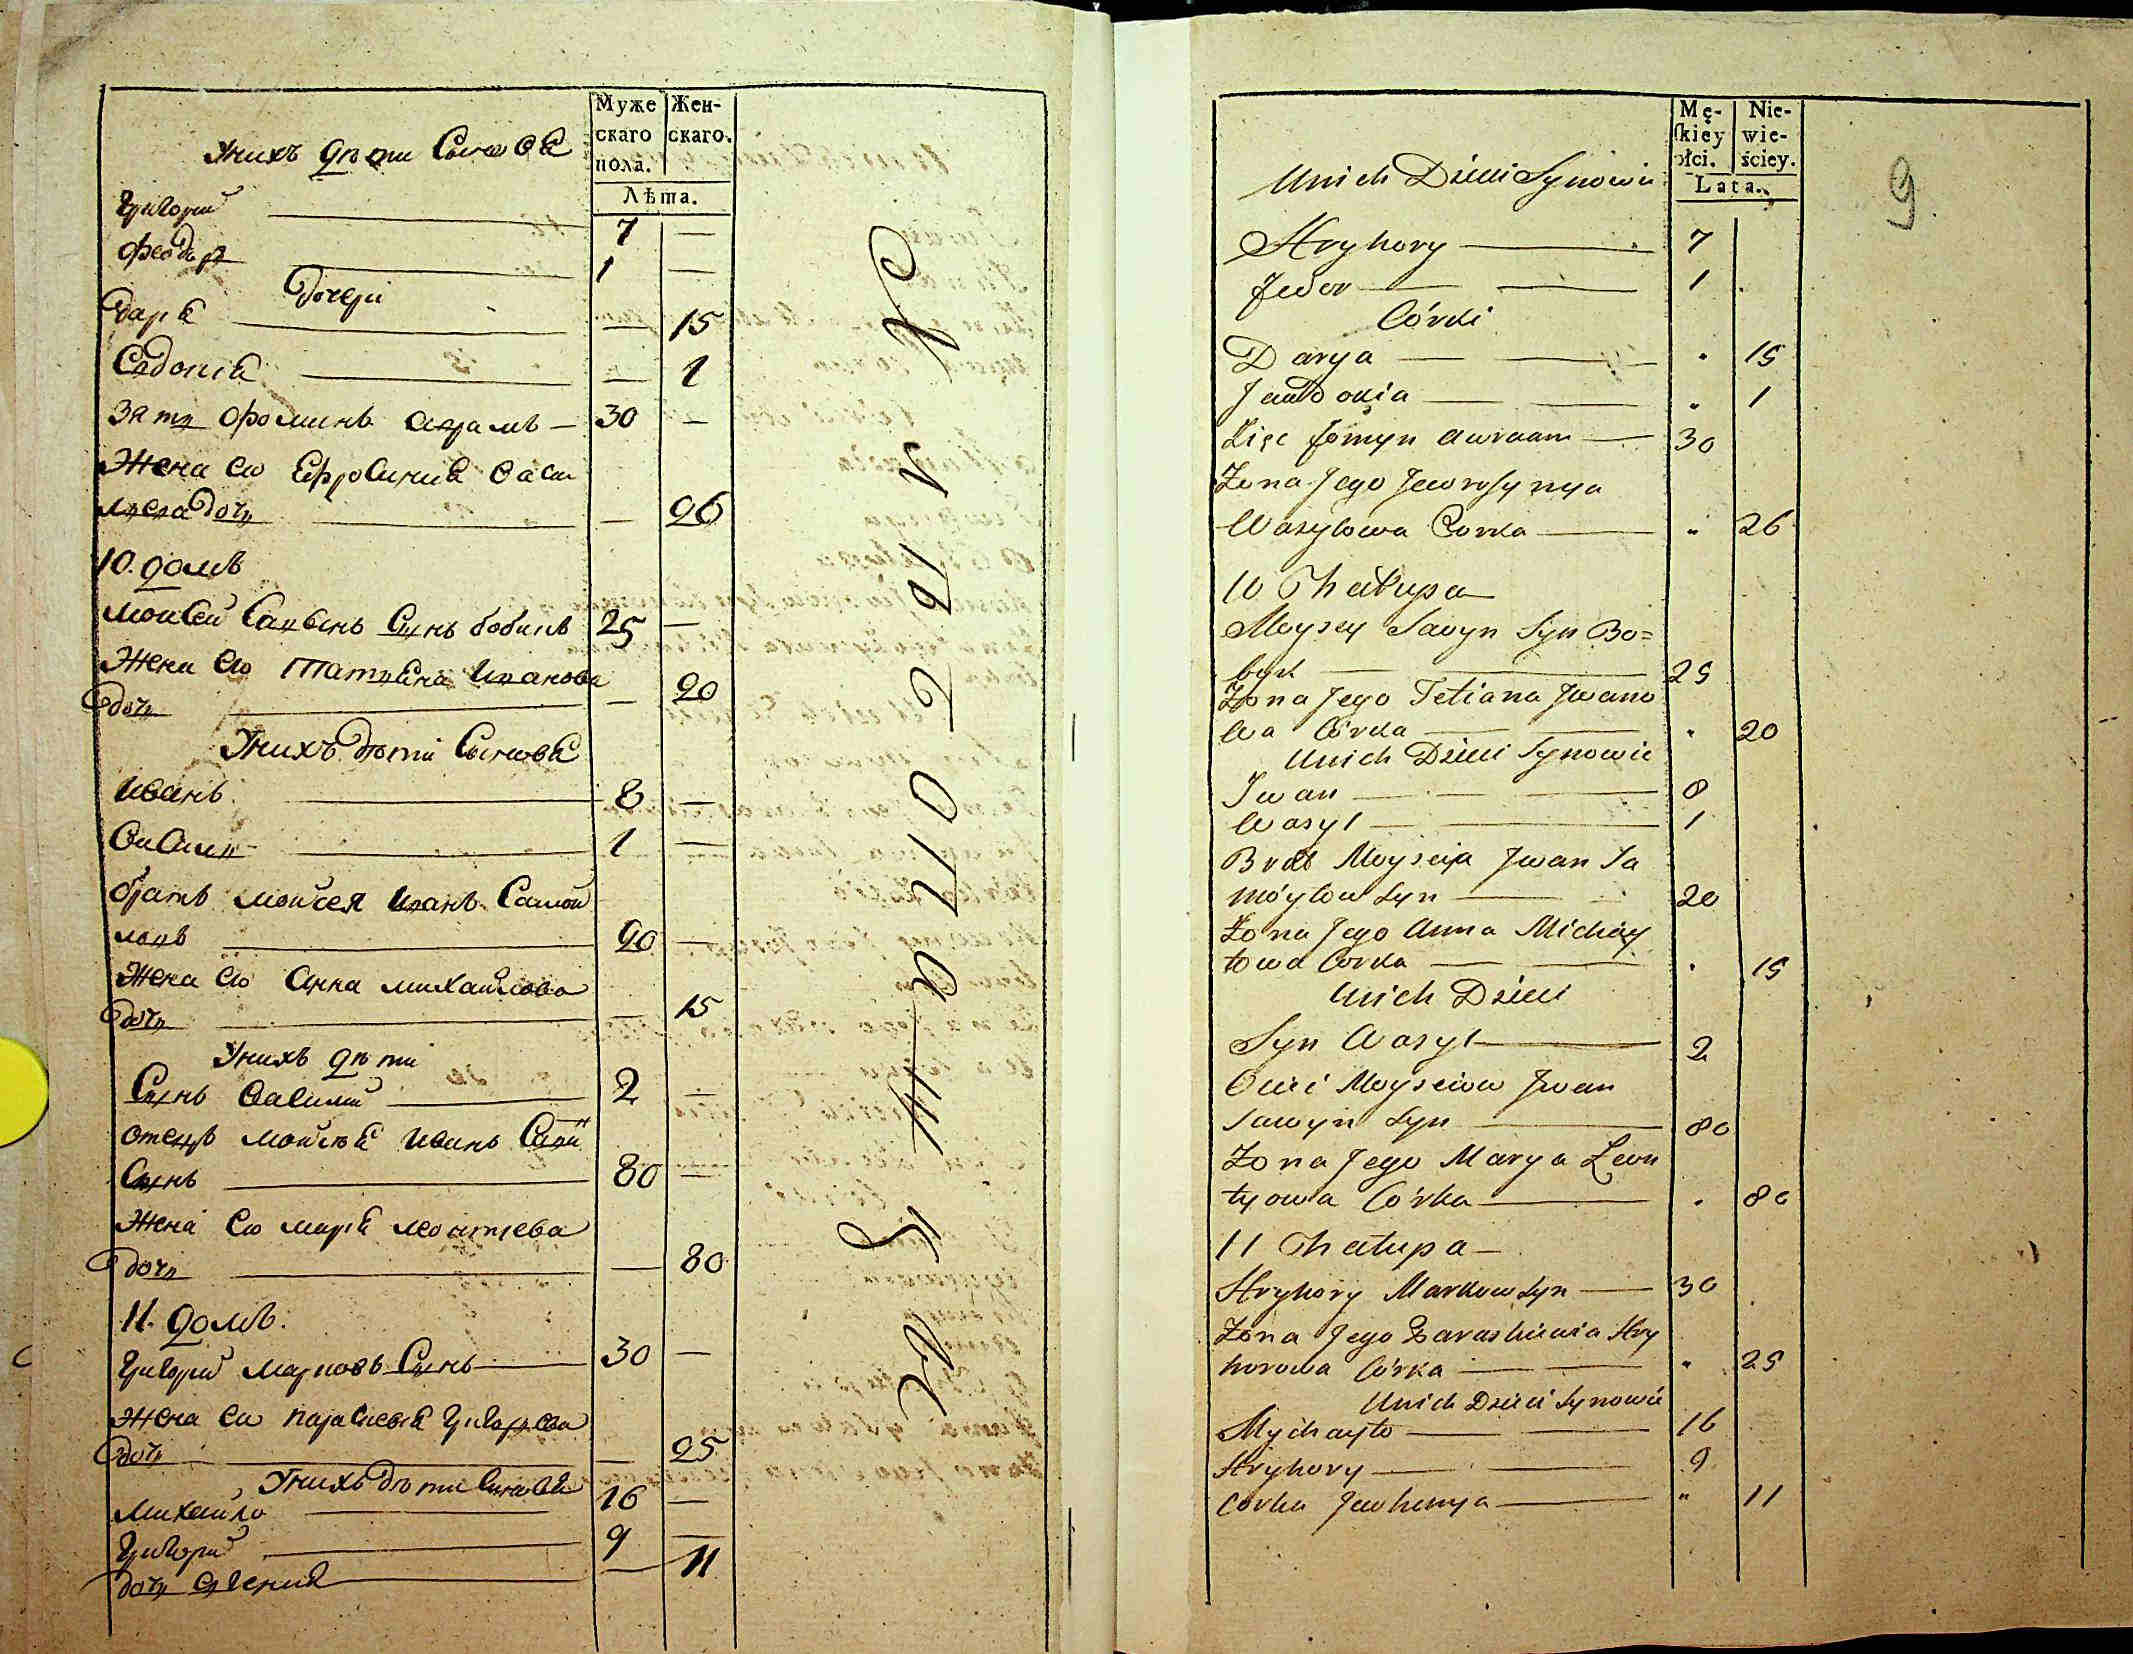 Муже
скаго
пола.
Жен-
скаго.
Лѣта.
Унихъ дѣти Сыновѧ
Григорий 7 —
Феодоръ 1 —
Дочери
Дарѧ — 15
Евдокиѧ — 1
Зять Фоминъ — 30 —
Жена его Ефросиниѧ Васи
лиева дочь — 26
10. домъ
Моисей Саввинъ Сынъ бобикъ 25 —
Жена его Татиѧна Иванова
дочь — 20
Унихъ дѣти Сыновѧ
Иванъ 8 —
Василий 1 —
братъ Моисея Иванъ Самой
ловъ 20 —
Жена его Анна Михайлова
дочь — 15
Унихъ дѣти
Сынъ Василий 2 —
отецъ Моисеѧ Иванъ Саввин
Сынъ 80 —
Жена его Марѧ Леонтиева
дочь — 80
11. домъ.
Григорий Марковъ Сынъ 30 —
Жена его Параскевиѧ Григорева
дочь — 25
Унихъ дѣти Сыновѧ
Михайло 16 —
Григорий 9 —
дочь Евгения — 11
Mę-
skiey
płci.
Nie-
wie-
ściey.
Lata.
9.
Unich Dzieci Synowie
Hryhory — 7
Fedor — 1
Córki
Darya — " 15
Jewdokia — " 1
Zięc Fomyn Awraam — 30
Żona Jego Jewrosynya
Wasylowa Corka — " 26
10 Chałupa
Moysey Sawyn Syn Bo=
byk — 25
Żona Jego Tetiana Jwano
wa Córka — " 20
Unich Dzieci Synowie
Jwan — 8
Wasyl — 1
Brat Moyseja Jwan Sa
moyłow Syn — 20
Żona Jego Anna Michay
łowa Corka — " 15
Unich Dzieci
Syn Wasyl — 2
Ociec Moyseiow Jwan
Sawyn Syn — 80
Żona Jego Marya Leon
tyowa Córka — " 80
11 Chałupa —
Hryhory Markow Syn — 30
Żona Jego Paraskiewia Hry
horowa Córka — " 25
Unich Dzieci Synowie
Mychayło — 16
Hryhory — 9
Corka Jewhenya — " 11